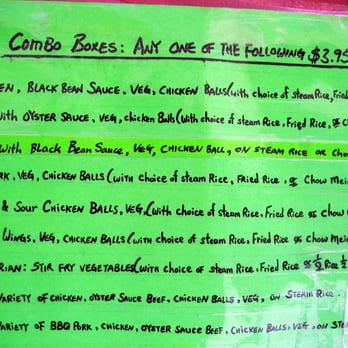 Combo Boxes: Any one of the following $3.95
EN, Black Bean Sauce, Veg, Chicken Balls (with choice of steam Rice, Fried
with Oyster Sauce, Veg, chicken Balls (with choice of steam Rice, Fried Rice, or C
with Black Bean Sauce, Veg, Chicken Ball, on steam Rice or Chow
RK, Veg, Chicken Balls (with choice of steam Rice, Fried Rice, or Chow Mein
& Sour Chicken Balls, Veg, (with choice of steam Rice, Fried Rice or Chow
Wings, Veg, Chicken Balls (with choice of steam Rice, Fried Rice or Chow Mein
RIAN: Stir Fry Vegetables (with choice of steam Rice, Fried Rice or ½ Rice ½
Variety of Chicken, Oyster Sauce Beef, Chicken Balls, Veg, on Steam Rice.
Variety of BBQ Pork, Chicken, Oyster Sauce Beef, Chicken Balls, Veg, on Stea